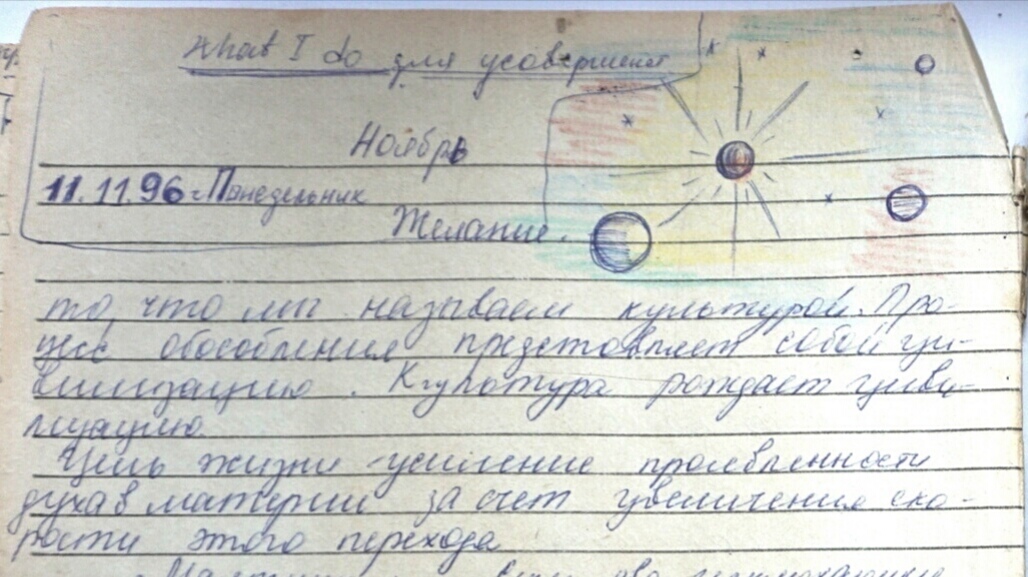 What I do для усовершенст
Ноябрь
11.11.96 г. Понедельник
Желание.
то, что мы называем культурой. Про-
цесс обособления представляет собой ци-
вилизацию. Культура рождает циви-
лизацию.
Цель жизни - усиление проявленности
духа в материи за счет увеличения ско-
рости этого перехода